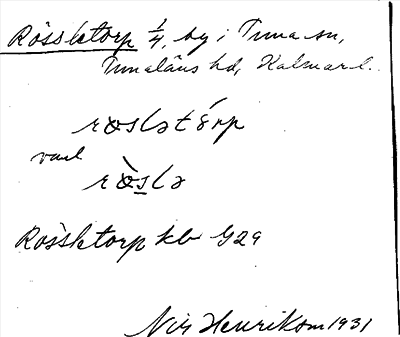 Rössletorp 1/4, by i Tuna sn,
Tunaläns hd, Kalmar l.
røslət órp
vard
rø̀slə
Rössletorp kb G29
Nils Henrikson 1931